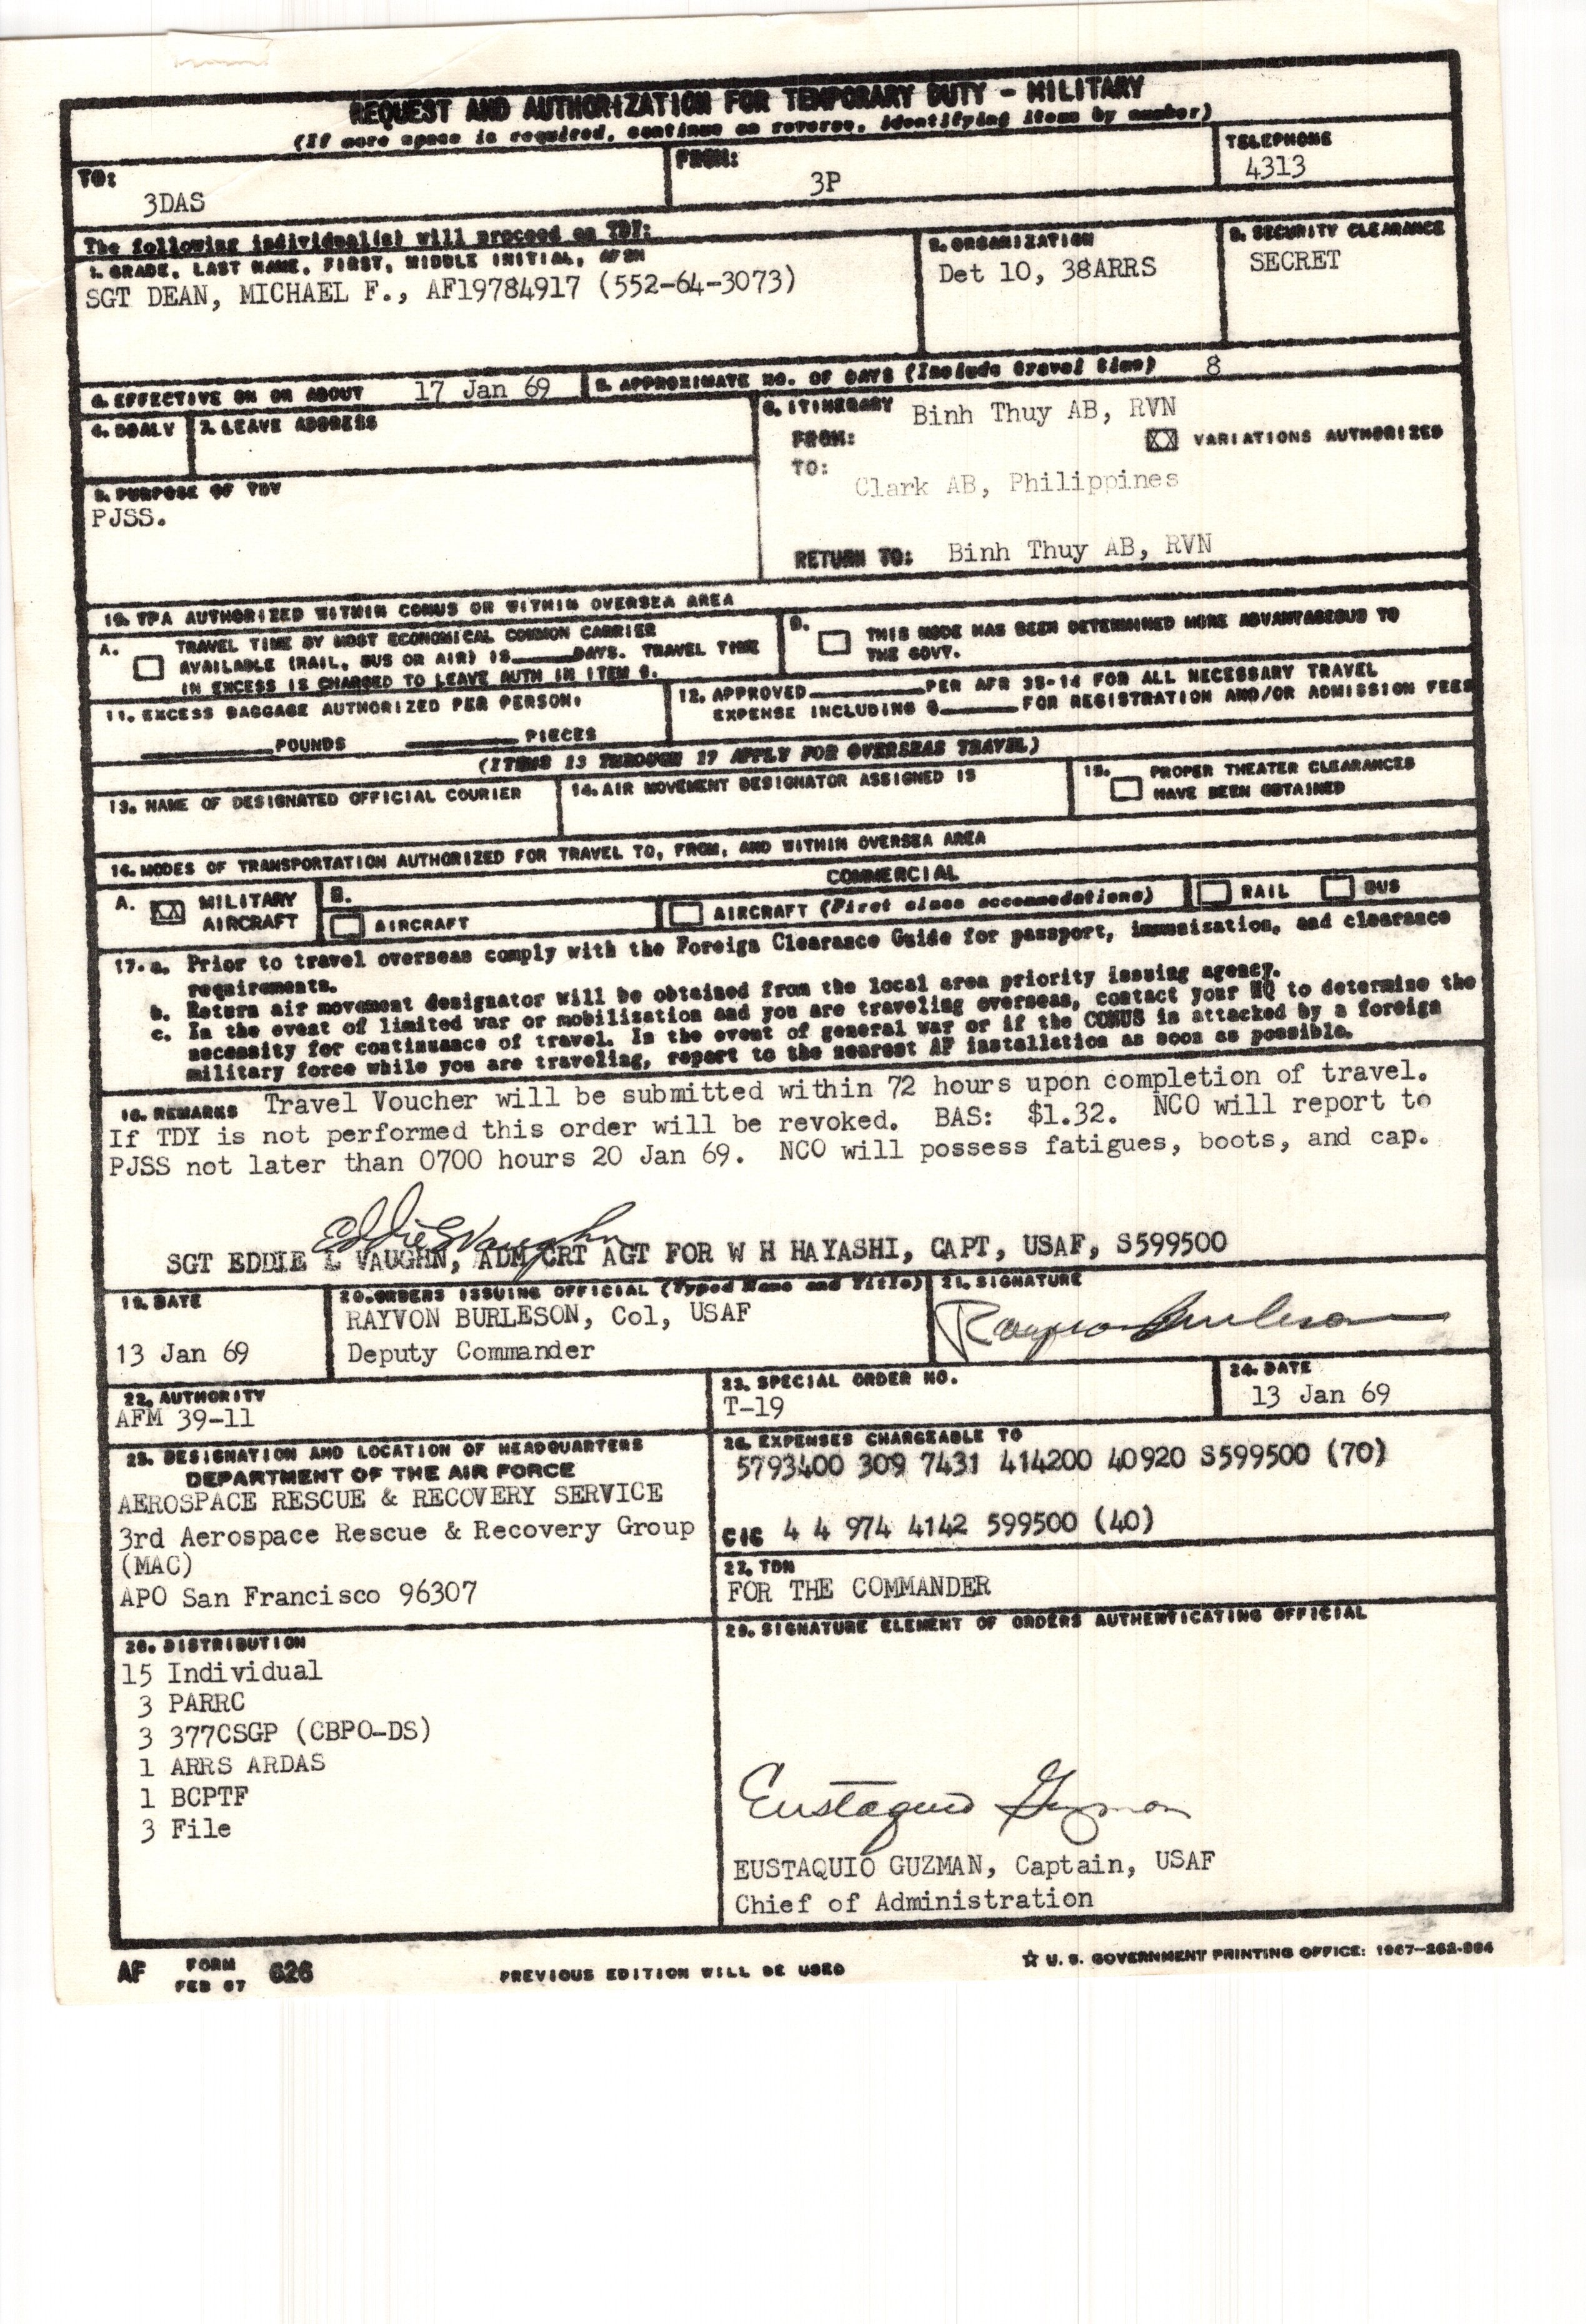 REQUEST AND AUTHORIZATION FOR TEMPORARY DUTY - MILITARY
(If more space is required, continue on reverse, identifying items by number)
TO:
3DAS
FROM:
3P
TELEPHONE
4313
The following individual(s) will proceed on TDY:
1. GRADE, LAST NAME, FIRST, MIDDLE INITIAL, AFSN
SGT DEAN, MICHAEL F., AF19784917 (552-64-3073)
2. ORGANIZATION
Det 10, 38ARRS
3. SECURITY CLEARANCE
SECRET
4. EFFECTIVE ON OR ABOUT 17 Jan 69
5. APPROXIMATE NO. OF DAYS (Include travel time) 8
6. DDALV
7. LEAVE ADDRESS
8. ITINERARY
FROM: Binh Thuy AB, RVN
XX VARIATIONS AUTHORIZED
TO:
Clark AB, Philippines
RETURN TO: Binh Thuy AB, RVN
9. PURPOSE OF TDY
PJSS.
10. TPA AUTHORIZED WITHIN CONUS OR WITHIN OVERSEA AREA
A. TRAVEL TIME BY MOST ECONOMICAL COMMON CARRIER
AVAILABLE (RAIL, BUS OR AIR) IS DAYS. TRAVEL TIME
IN EXCESS IS CHARGED TO LEAVE AUTH IN ITEM 6.
B. THIS MODE HAS BEEN DETERMINED MORE ADVANTAGEOUS TO
THE GOVT.
11. EXCESS BAGGAGE AUTHORIZED PER PERSON:
POUNDS PIECES
12. APPROVED PER AFR 35-14 FOR ALL NECESSARY TRAVEL
EXPENSE INCLUDING $ FOR REGISTRATION AND/OR ADMISSION FEES
(ITEMS 13 THROUGH 17 APPLY FOR OVERSEAS TRAVEL)
13. NAME OF DESIGNATED OFFICIAL COURIER
14. AIR MOVEMENT DESIGNATOR ASSIGNED IS
15. PROPER THEATER CLEARANCES
HAVE BEEN OBTAINED
16. MODES OF TRANSPORTATION AUTHORIZED FOR TRAVEL TO, FROM, AND WITHIN OVERSEA AREA
A. XX MILITARY
AIRCRAFT
B. COMMERCIAL
AIRCRAFT AIRCRAFT (First class accommodations) RAIL BUS
17. a. Prior to travel overseas comply with the Foreign Clearance Guide for passport, immunization, and clearance
requirements.
b. Return air movement designator will be obtained from the local area priority issuing agency.
c. In the event of limited war or mobilization and you are traveling overseas, contact your HQ to determine the
necessity for continuance of travel. In the event of general war or if the CONUS is attacked by a foreign
military force while you are traveling, report to the nearest AF installation as soon as possible.
18. REMARKS Travel Voucher will be submitted within 72 hours upon completion of travel.
If TDY is not performed this order will be revoked. BAS: $1.32. NCO will report to
PJSS not later than 0700 hours 20 Jan 69. NCO will possess fatigues, boots, and cap.
Eddie L Vaughn
SGT EDDIE L VAUGHN, ADM CRT AGT FOR W H HAYASHI, CAPT, USAF, S599500
19. DATE
13 Jan 69
20. ORDERS ISSUING OFFICIAL (Typed Name and Title)
RAYVON BURLESON, Col, USAF
Deputy Commander
21. SIGNATURE
Rayvon Burleson
22. AUTHORITY
AFM 39-11
23. SPECIAL ORDER NO.
T-19
24. DATE
13 Jan 69
25. DESIGNATION AND LOCATION OF HEADQUARTERS
DEPARTMENT OF THE AIR FORCE
AEROSPACE RESCUE & RECOVERY SERVICE
3rd Aerospace Rescue & Recovery Group
(MAC)
APO San Francisco 96307
26. EXPENSES CHARGEABLE TO
5793400 309 7431 414200 40920 S599500 (70)
CIC 4 4 974 4142 599500 (40)
27. TDN
FOR THE COMMANDER
28. DISTRIBUTION
15 Individual
3 PARRC
3 377CSGP (CBPO-DS)
1 ARRS ARDAS
1 BCPTF
3 File
29. SIGNATURE ELEMENT OF ORDERS AUTHENTICATING OFFICIAL
Eustaquio Guzman
EUSTAQUIO GUZMAN, Captain, USAF
Chief of Administration
AF FORM 626
FEB 67
PREVIOUS EDITION WILL BE USED
☆ U. S. GOVERNMENT PRINTING OFFICE: 1967-262-994